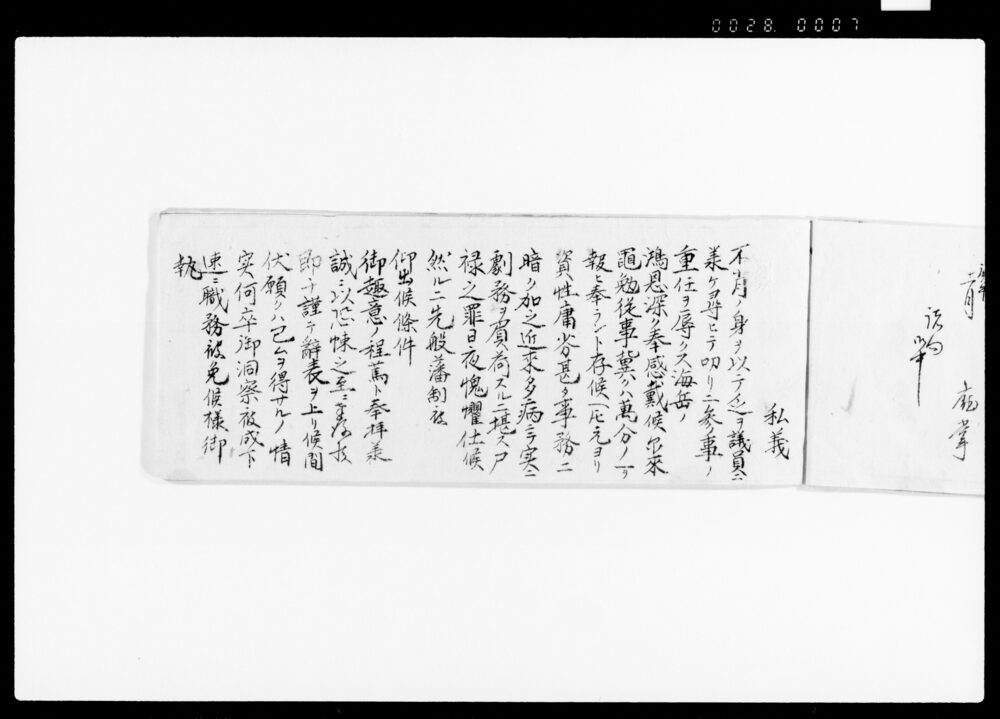 0028. 0007
私義
不肖ノ身ヲ以テ乏ヲ議員ニ
承ケ尋ヒテ叨リニ参事ノ
重任ヲ辱クス海岳ノ
鴻恩深ク奉感戴候尓来
黽勉従事冀クハ萬分ノ一ヲ
報ヒ奉ラント存候ヘ𪜈元ヨリ
資性庸劣甚タ事務ニ
暗ク加之近来多病ニテ実ニ
劇務ヲ負荷スルニ堪ヘス尸
禄之罪日夜愧懼仕候
然ルニ先般藩制被
仰出候條件
御趣意ノ程篤ト奉拝承
誠ニ以恐悚之至ニ
即今謹テ辞表ヲ上リ候間
伏願クハ已ムヲ得サルノ情
実何卒御洞察被成下
速ニ職務被免候様御
執